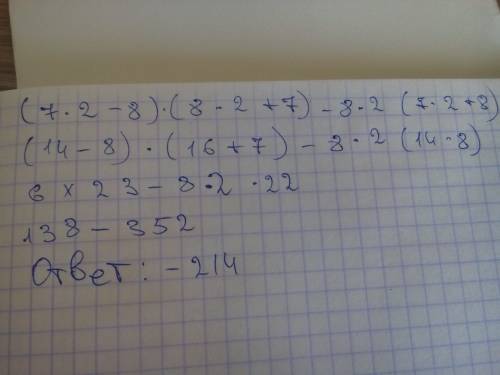 (7·2-8)·(8·2+7)-8·2 (7·2+8)
(14-8)·(16+7)-8·2 (14·8)
6×23-8·2·22
138-352
Ответ: -214